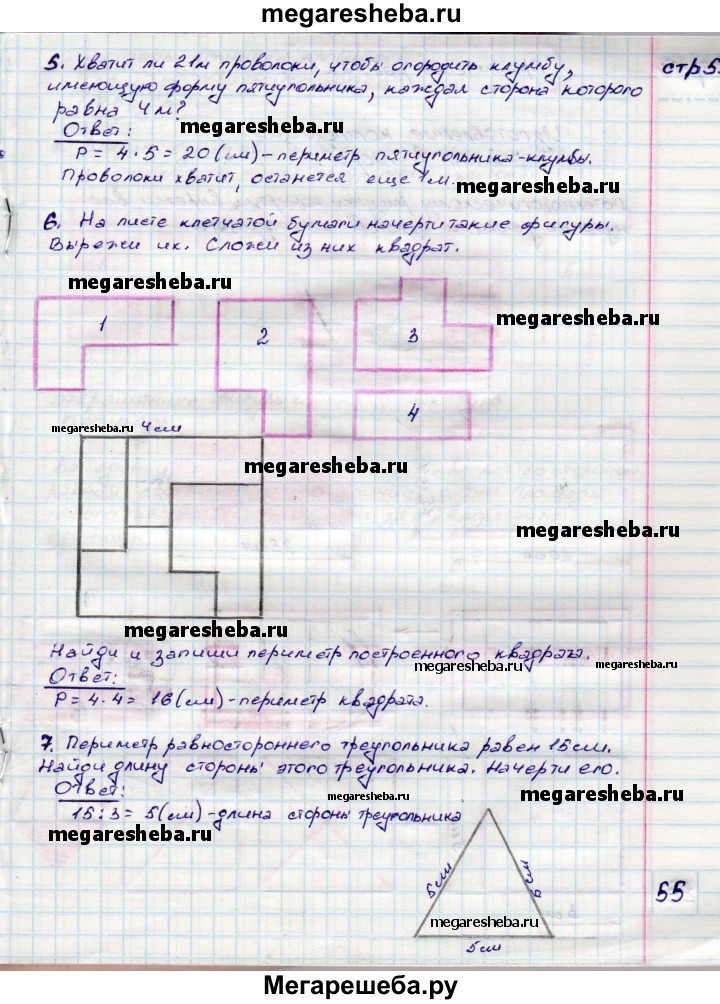 megaresheba.ru
стр 5.
5. Хватит ли 21м проволоки, чтобы огородить клумбу,
имеющую форму пятиугольника, каждая сторона которого
равна 4м?
Ответ:
megaresheba.ru
megaresheba.ru
P = 4 · 5 = 20 (см) - периметр пятиугольника-клумбы.
Проволоки хватит, останется еще 1м
megaresheba.ru
6. На листе клетчатой бумаги начерти такие фигуры.
Вырежи их. Сложи из них квадрат.
megaresheba.ru
megaresheba.ru
megaresheba.ru
1
2
3
4
megaresheba.ru
4см
megaresheba.ru
megaresheba.ru
Найди и запиши периметр построенного квадрата.
megaresheba.ru
megaresheba.ru
Ответ:
P = 4 · 4 = 16 (см) - периметр квадрата.
7. Периметр равностороннего треугольника равен 15см.
Найди длину стороны этого треугольника. Начерти его.
Ответ:
megaresheba.ru
megaresheba.ru
15 : 3 = 5 (см) - длина стороны треугольника
megaresheba.ru
5см
5см
megaresheba.ru
5см
55
Мегарешеба.ру